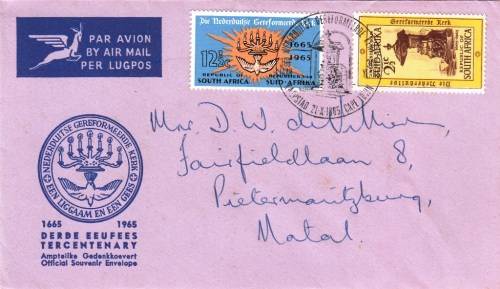 PAR AVION
BY AIR MAIL
PER LUGPOS
Die Nederduitse Gereformeerde Kerk
1665
1965
12½c
REPUBLIC OF
SOUTH AFRICA
REPUBLIEK VAN
SUID-AFRIKA
Gereformeerde Kerk
2½c
SOUTH AFRICA
Die Nederduitse
NEDERDUITSE GEREFORMEERDE KERK
EEN LIGGAAM EN EEN GEES
1665 1965
DERDE EEUFEES
TERCENTENARY
Amptelike Gedenkkoevert
Official Souvenir Envelope
D. W. de Villiers,
Fairfieldlaan 8,
Pietermaritzburg,
Natal